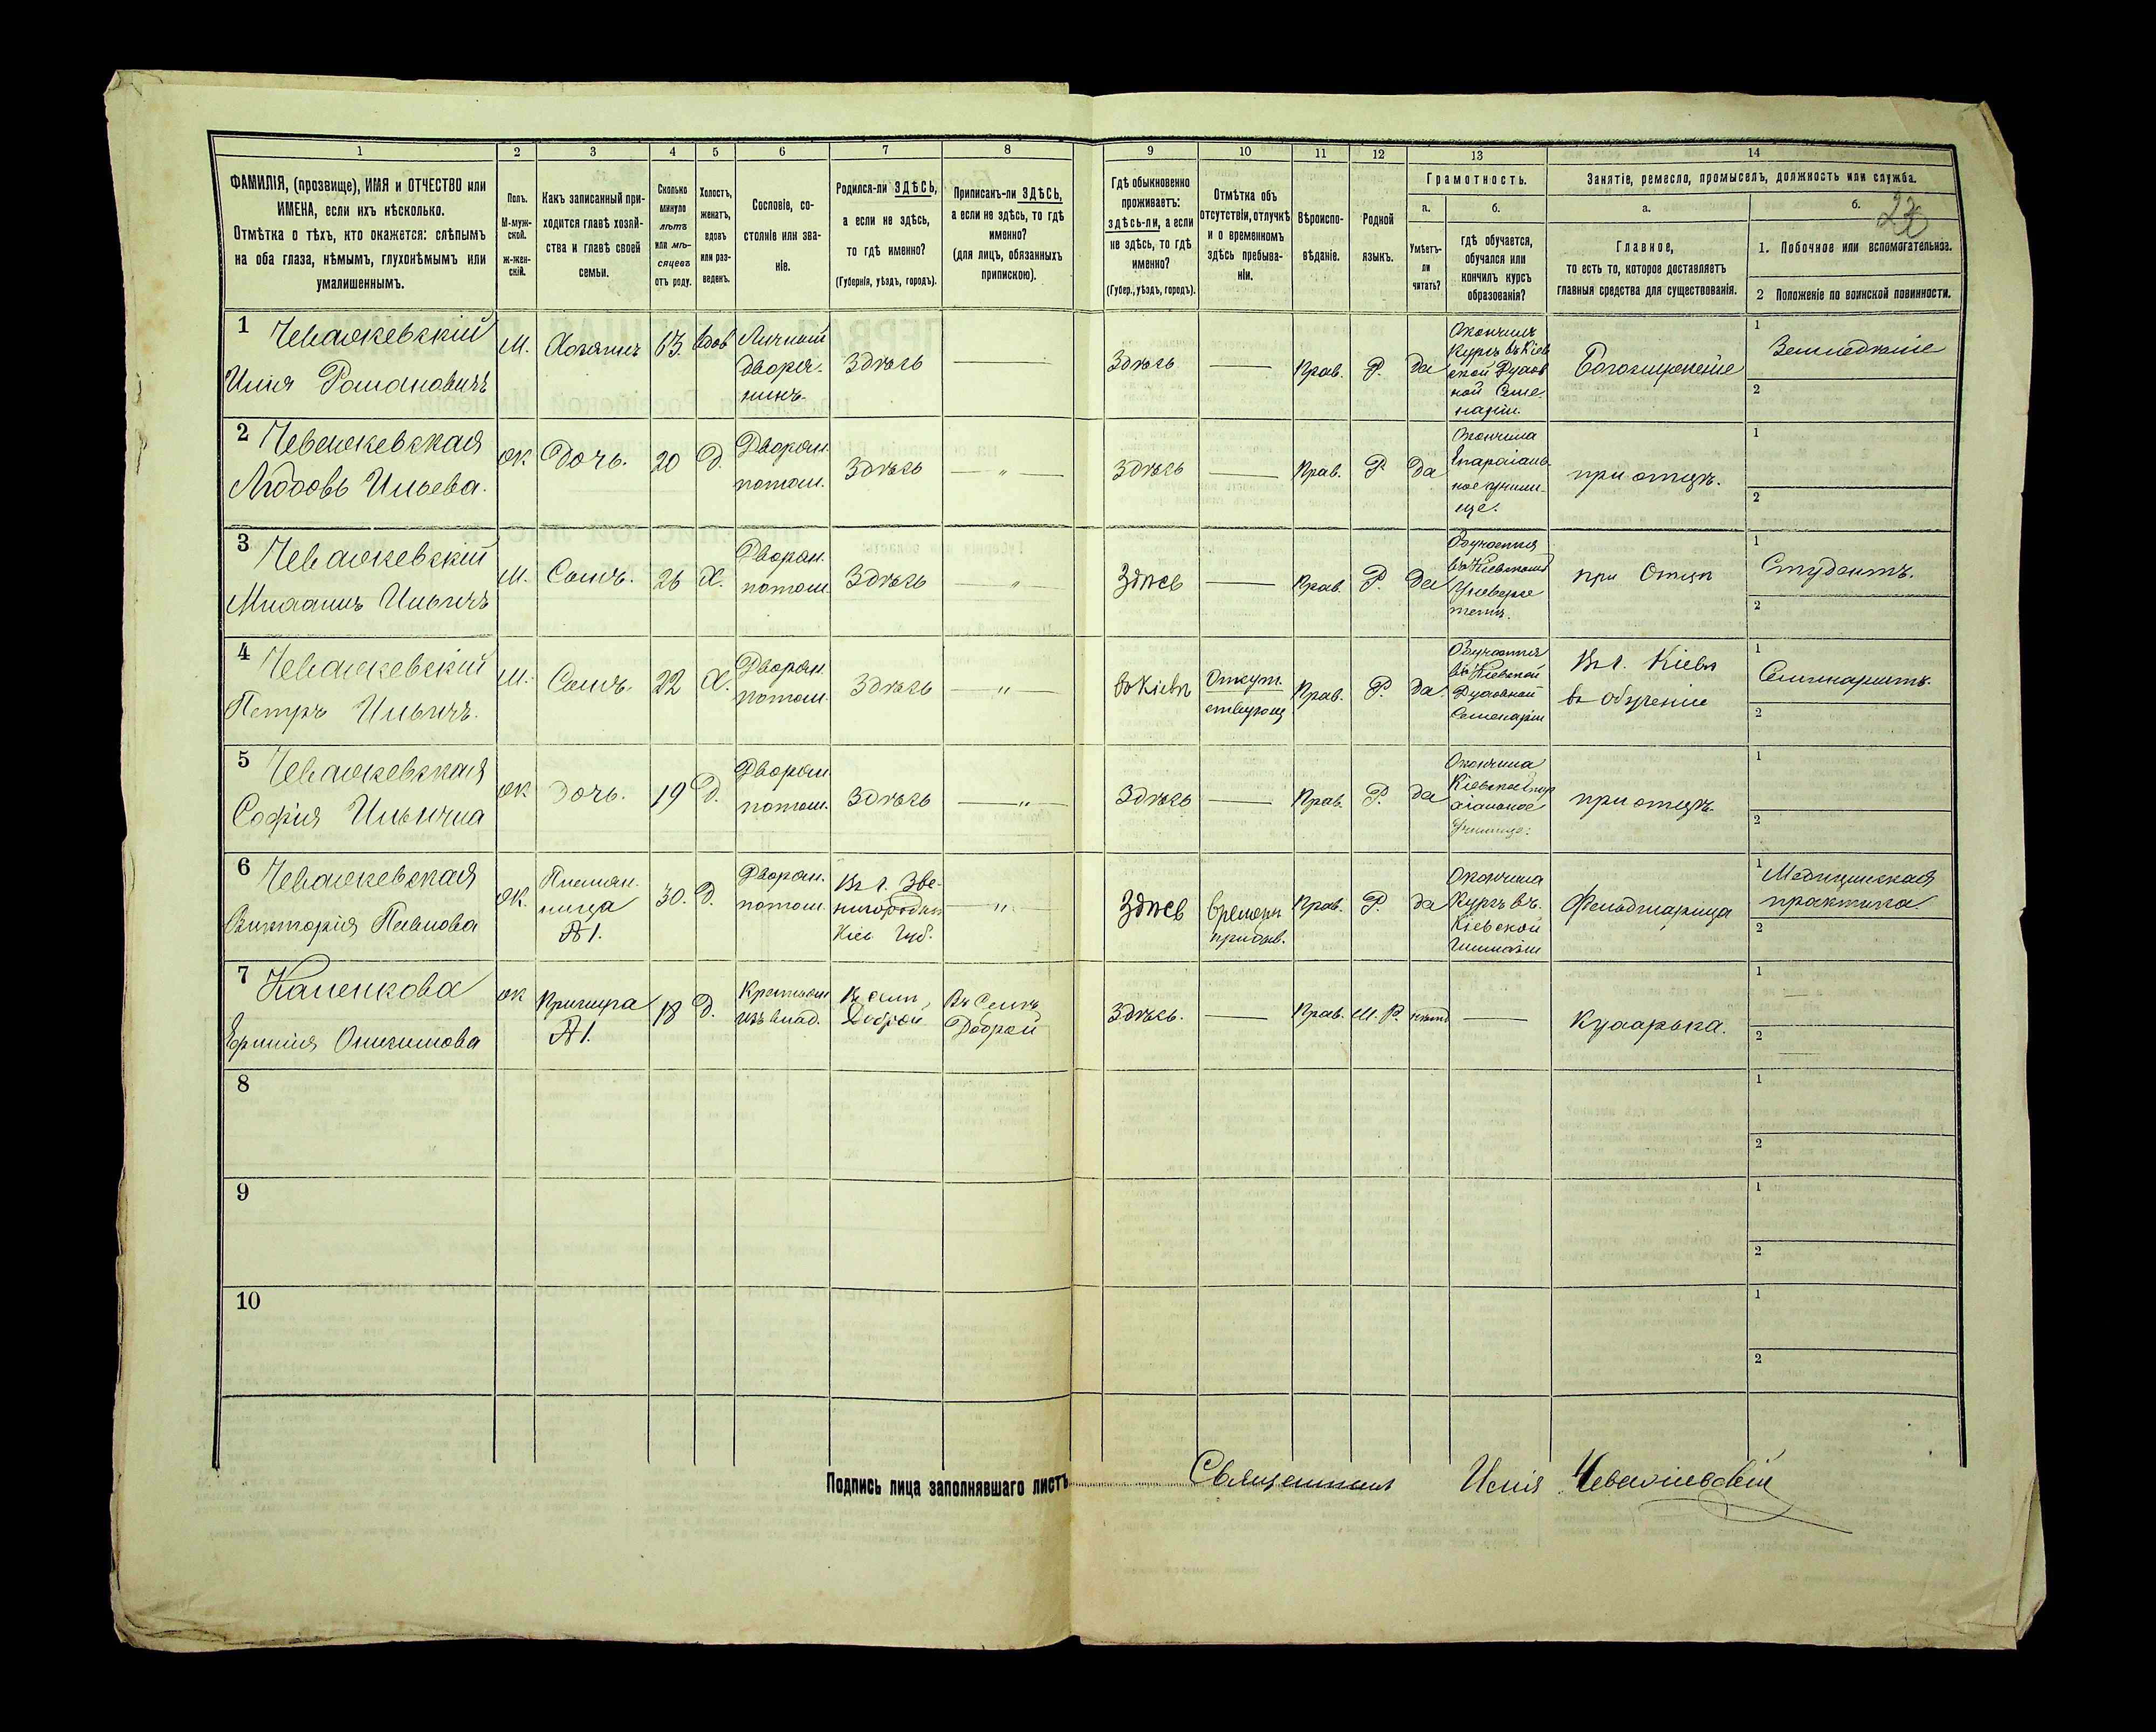 1
2
3
4
5
6
7
8
9
10
11
12
13
14
ФАМИЛІЯ, (прозвище), ИМЯ и ОТЧЕСТВО или
ИМЕНА, если ихъ нѣсколько.
Отмѣтка о тѣхъ, кто окажется: слѣпымъ
на оба глаза, нѣмымъ, глухонѣмымъ или
умалишеннымъ.
Полъ.
М-муж-
ской.
Ж-жен-
скій.
Какъ записанный при-
ходится главѣ хозяй-
ства и главѣ своей
семьи.
Сколько
минуло
лѣтъ
или мѣ-
сяцевъ
отъ роду.
Холостъ,
женатъ,
вдовъ
или раз-
веденъ.
Сословіе, со-
стояніе или зва-
ніе.
Родился-ли ЗДѢСЬ,
а если не здѣсь,
то гдѣ именно?
(Губернія, уѣздъ, городъ).
Приписанъ-ли ЗДѢСЬ,
а если не здѣсь, то гдѣ
именно?
(для лицъ, обязанныхъ
припискою).
Гдѣ обыкновенно
проживаетъ:
здѣсь-ли, а если
не здѣсь, то гдѣ
именно?
(Губер., уѣздъ, городъ).
Отмѣтка объ
отсутствіи, отлучкѣ
и о временномъ
здѣсь пребыва-
ніи.
Вѣроиспо-
вѣданіе.
Родной
языкъ.
Грамотность.
а.
Умѣетъ-
ли
читать?
б.
гдѣ обучается,
обучался или
кончилъ курсъ
образованія?
Занятіе, ремесло, промыселъ, должность или служба.
а.
Главное,
то есть то, которое доставляетъ
главныя средства для существованія.
б.
1. Побочное или вспомогательное.
2 Положеніе по воинской повинности.
1
Илія Романовичъ
М.
Хозяинъ
63.
вдов
Личный
дворя-
нинъ.
Здѣсь
Здѣсь
Прав.
Р.
да
Окончилъ
Курсъ въ Кіев
ской Духов
ной Семе-
наріи.
1
Земледѣліе
2
2
Любовь Ильева.
Ж
Дочь.
20
Д.
Дворян.
потом.
Здѣсь
"
Здѣсь
Прав.
Р
да
Окончила
Епархіаль-
ное учили-
ще.
при отцѣ.
1
2
3
Михаилъ Ильичъ
М.
Сынъ.
26
Х.
Дворян.
потом.
Здѣсь
"
Здѣсь
Прав.
Р.
да
Обучается
въ Кіевскомъ
Универси
тетѣ.
при Отцѣ
1
Студентъ.
2
4
Петръ Ильичъ.
М.
Сынъ.
22
Х.
Дворян.
потом.
Здѣсь
"
въ Кіевѣ
Отсут.
ствующ
Прав.
Р.
да.
Обучается
въ Кіевской
Духовной
Семенаріи
Въ г. Кіевѣ
въ обученіи
1
Семинаристъ.
2
5
Софія Ильична
Ж.
Дочь.
19
Д.
Дворян.
потом.
Здѣсь
"
Здѣсь
Прав.
Р.
да
Окончила
Кіевское Епар
хіальное
Училище.
при отцѣ.
1
2
6
Викторія Павлова
Ж.
Племян.
ница
№ 1.
30.
Д.
Дворян.
потом.
Въ г. Зве-
нигородкѣ
Кіев. Губ.
"
Здѣсь
временн
прибыв.
Прав.
Р.
да
Окончила
Курсъ въ.
Кіевской
Гимназіи
Фельдшерица
1 Медицинская
практика
2
7
№ 1.
18
Д.
Крестьян
изъ влад.
Въ Селѣ
Доброй
Въ Селѣ
Доброй
Здѣсь.
Прав.
М. Р.
нѣтъ
Кухарька.
1
2
8
1
2
9
1
2
10
1
2
Подпись лица заполнявшаго листъ Священникъ Илія